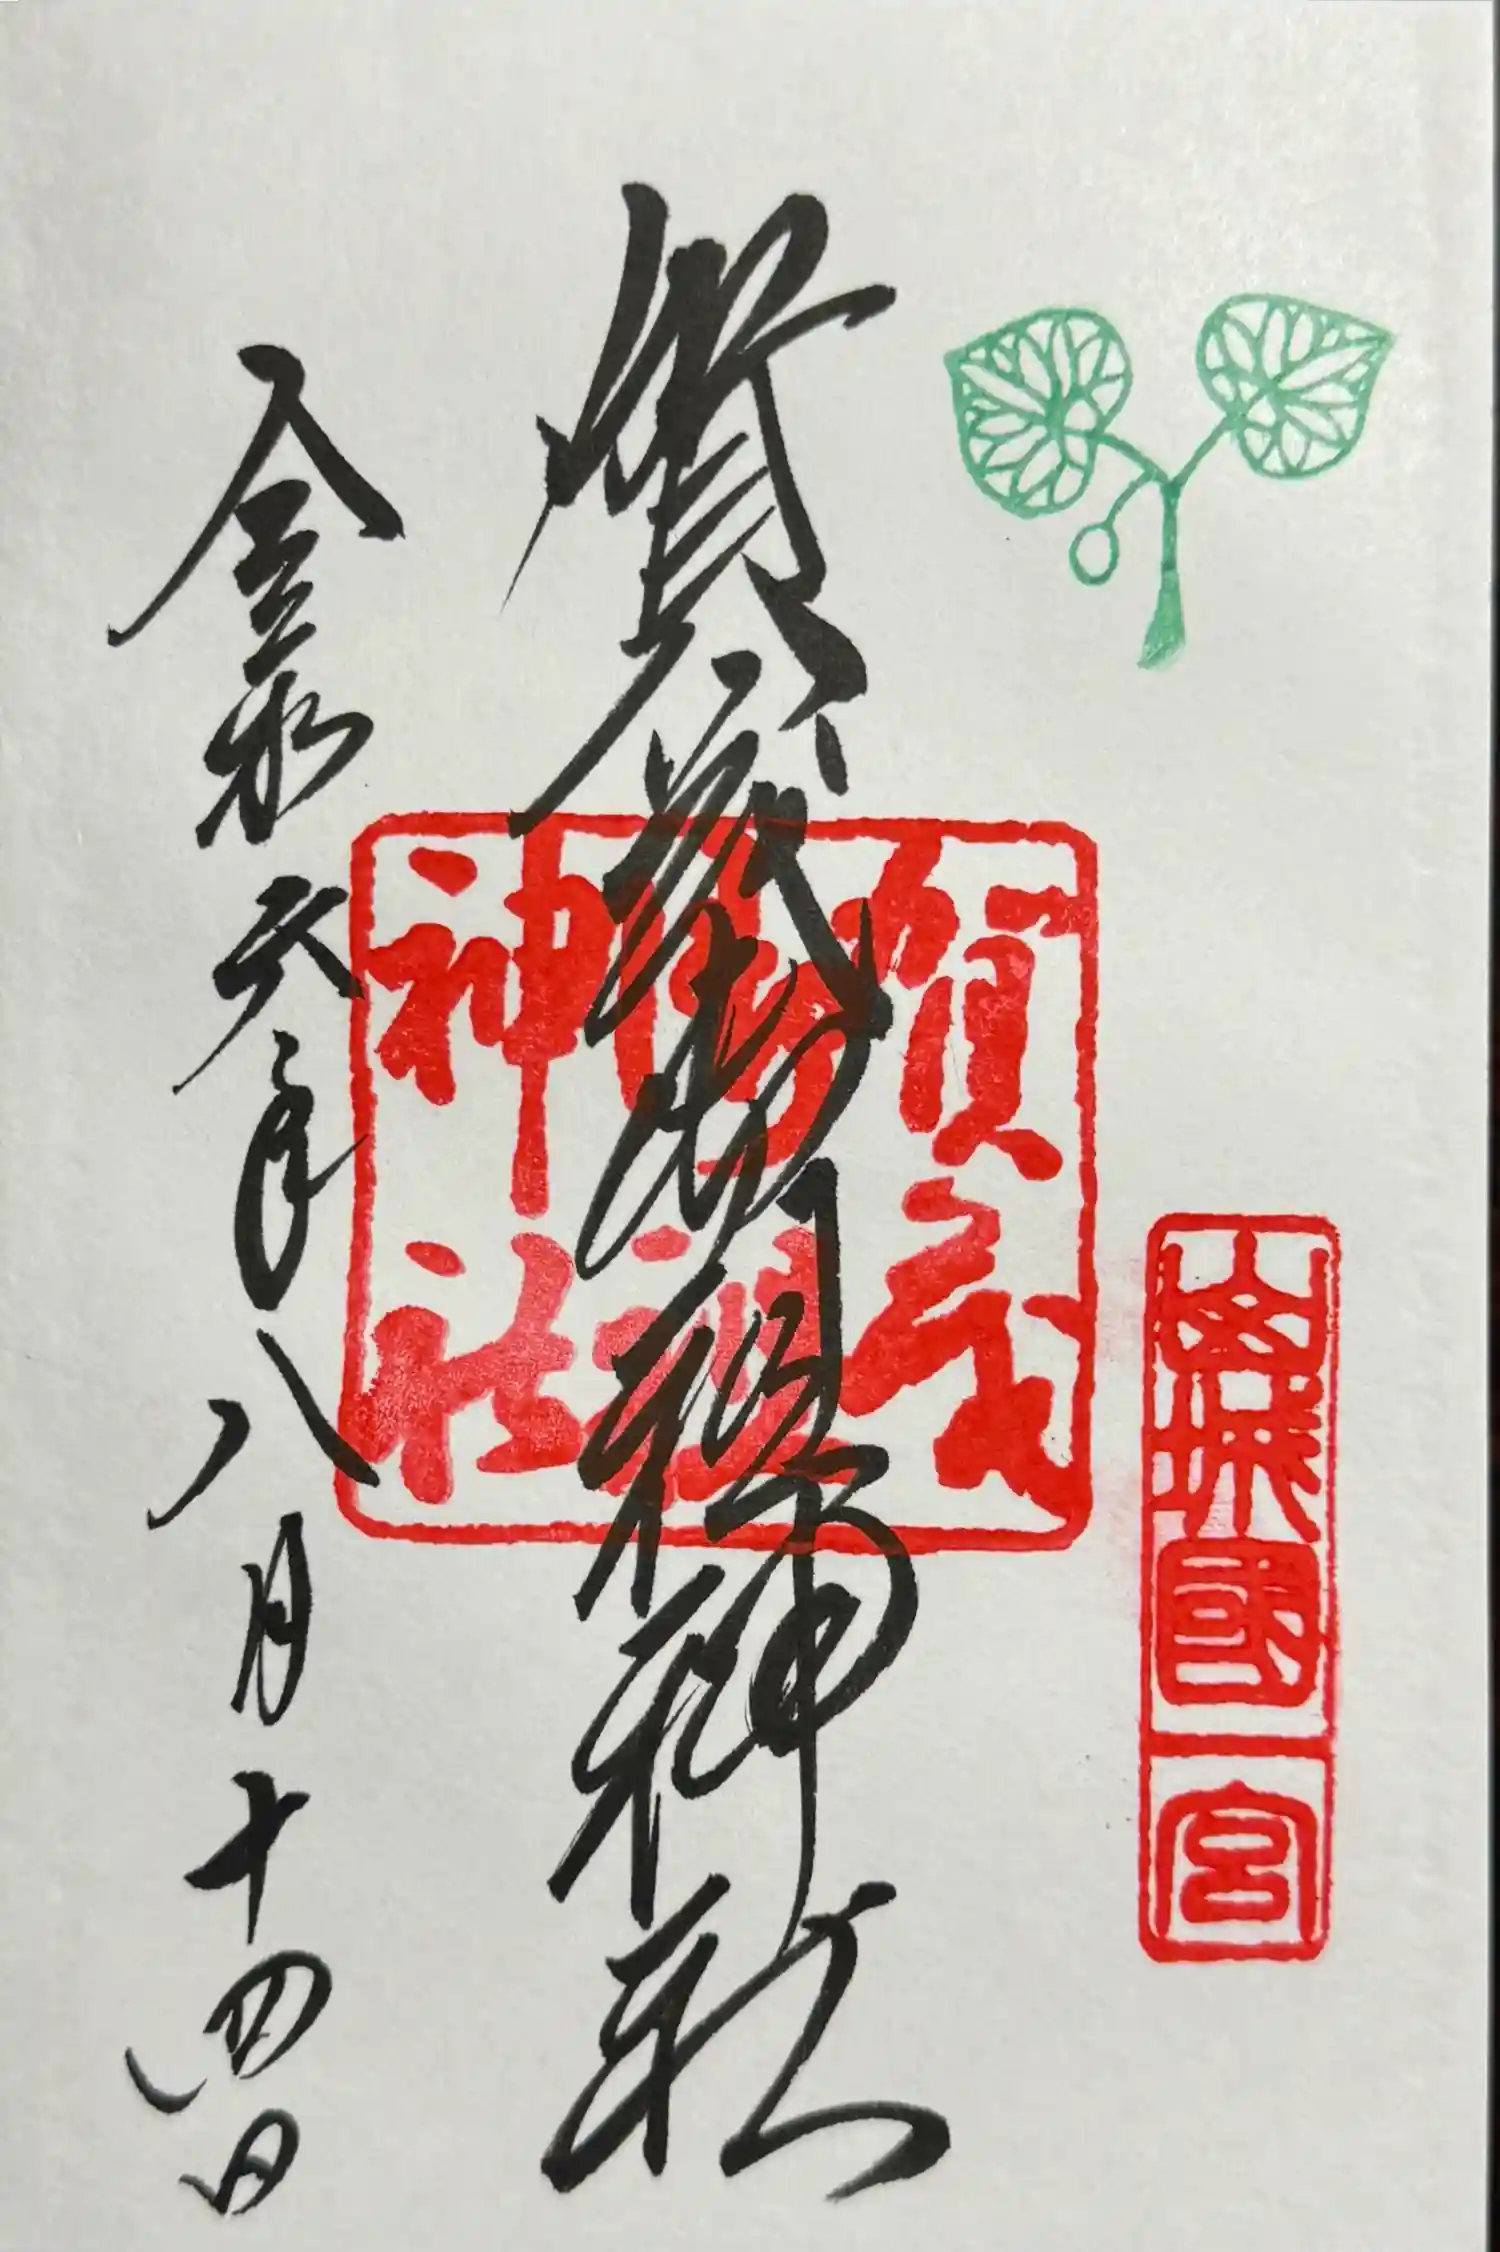 山城國一宮
賀茂御祖神社
賀茂
御祖
神社
令和六年八月十四日